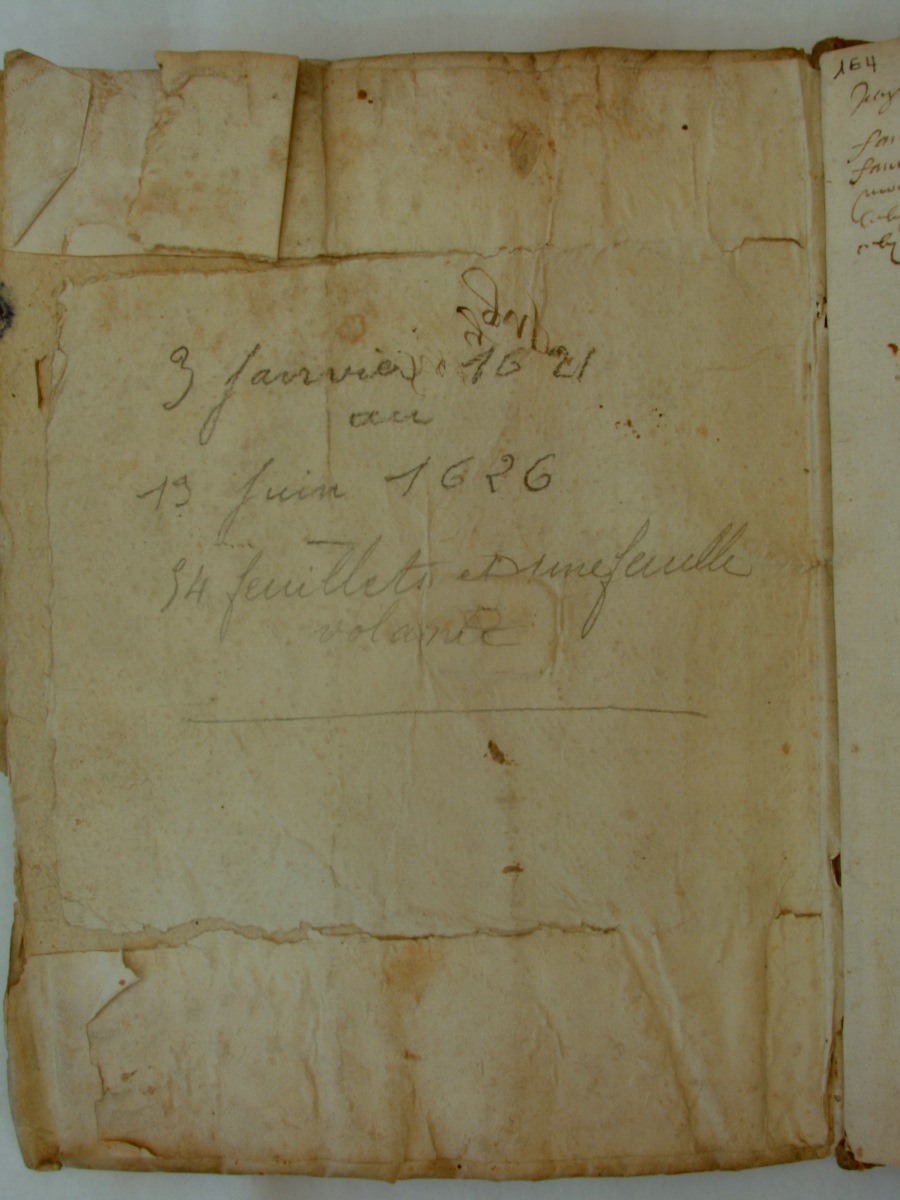 3 Janvier 1621
au
13 Juin 1626
94 feuillets et une feuille
volante
164